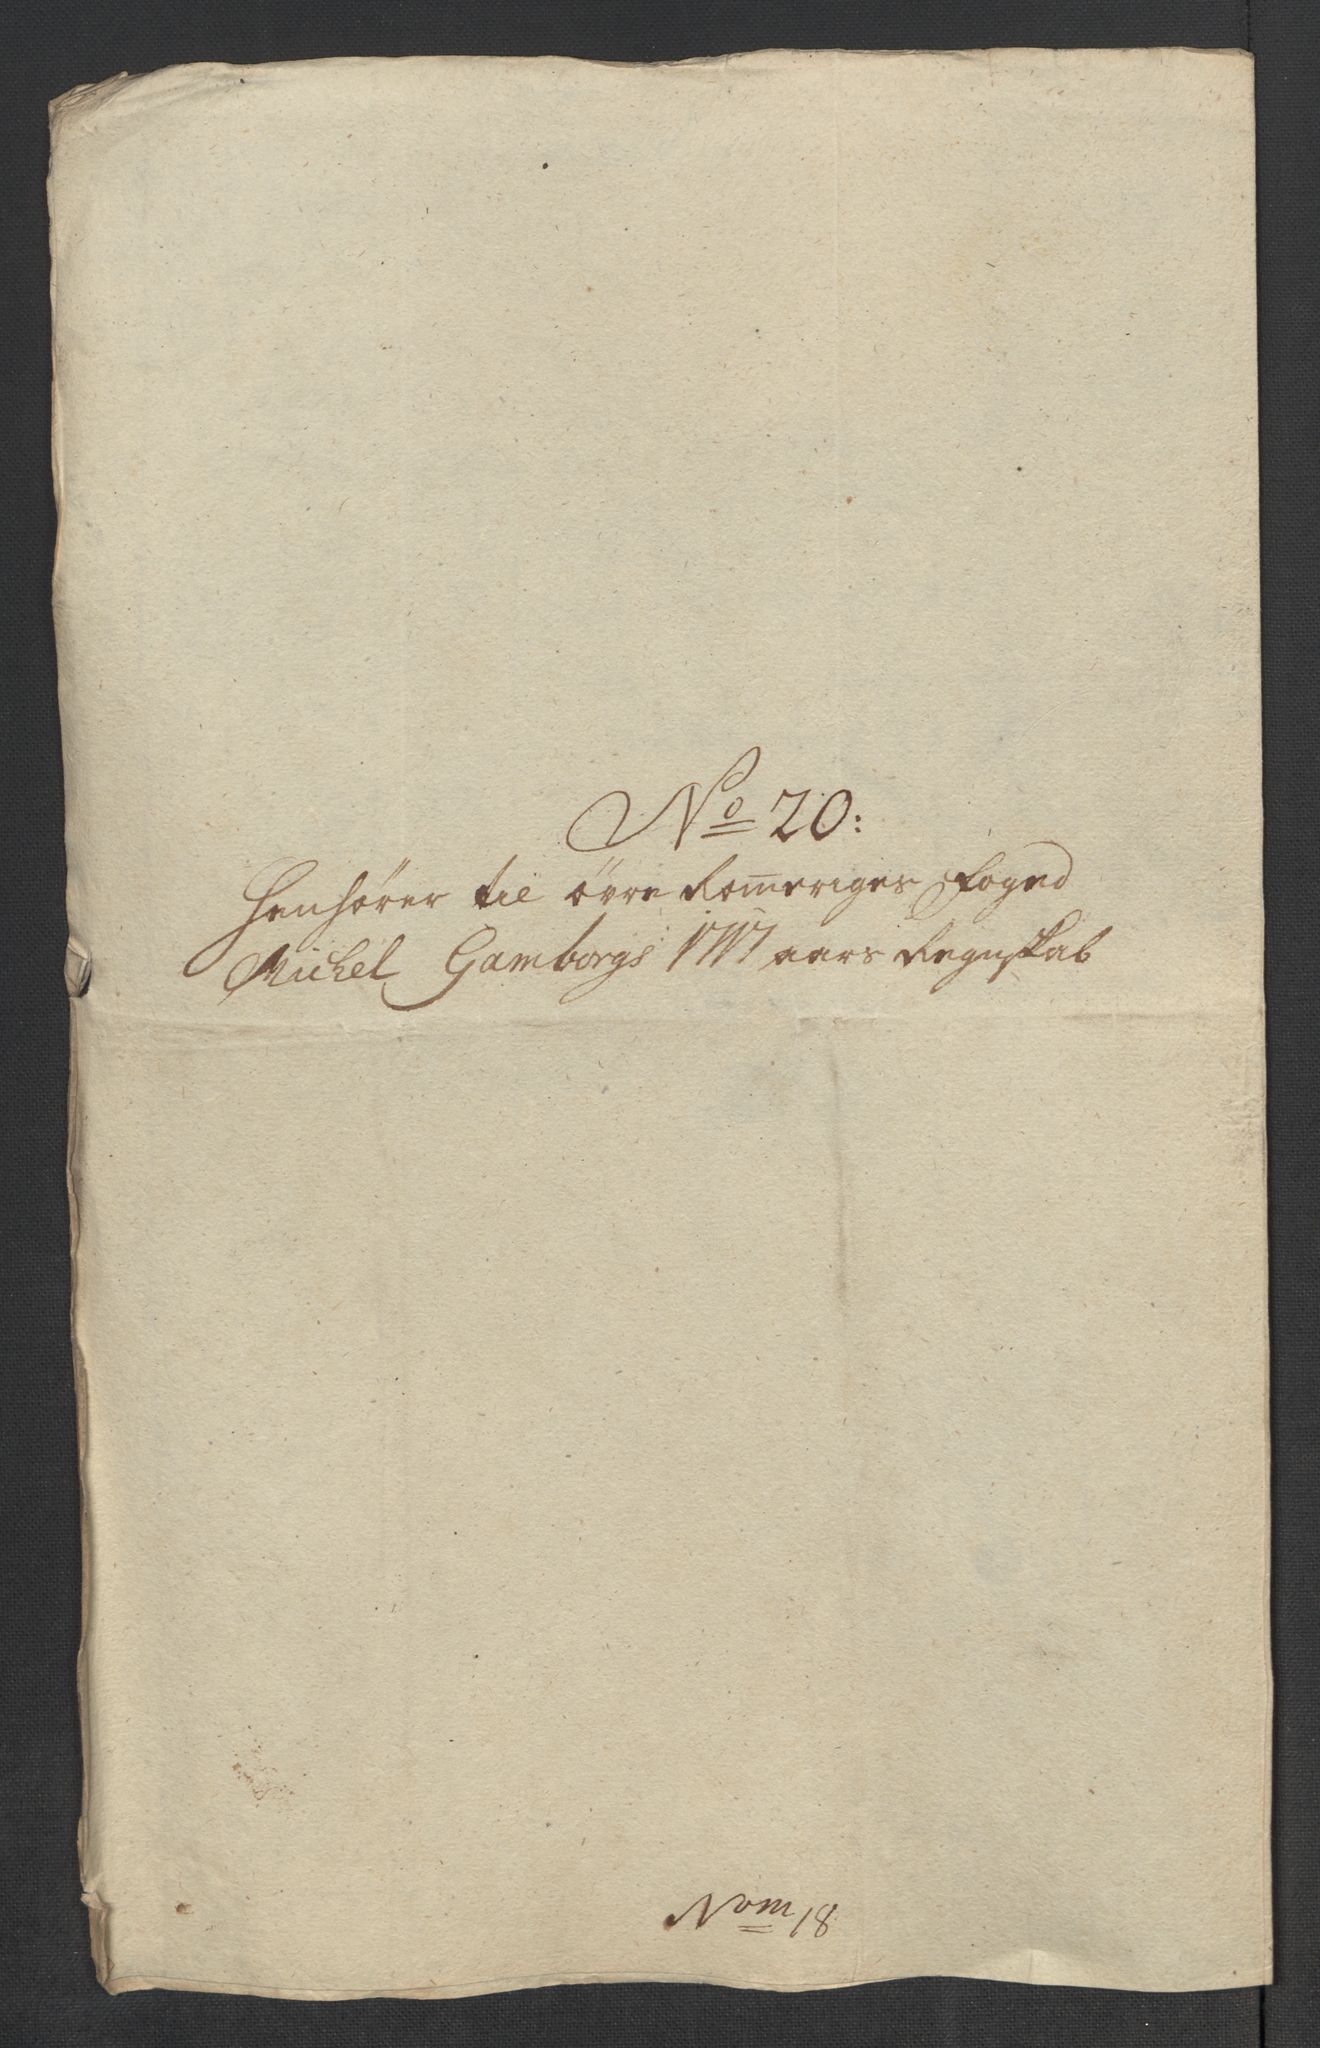 No 20:
Henhører til øvre Romeriges Foged
Michel Gamborgs 1717 aars Regnskab
Nom 18